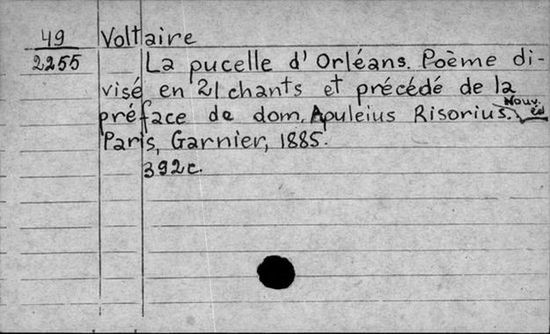 49 Voltaire
2255 La pucelle d'Orléans. Poème di-
visé en 21 chants et précédé de la
préface de dom. Apuleius Risorius. Nouv. éd
Paris, Garnier, 1885.
392c.